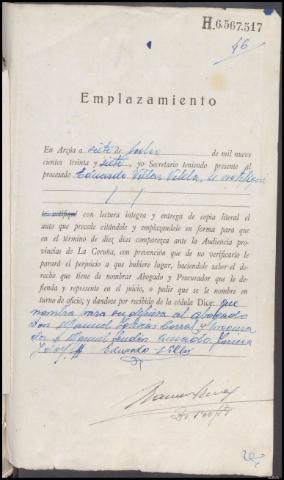 H.6.567.517
46
Emplazamiento
En Arzúa a siete de Julio de mil nueve
cientos treinta y siete, yo Secretario teniendo presente al
procesado Eduardo Villar Vilela, le notifiqué
le notifiqué con lectura íntegra y entrega de copia literal el
auto que precede citándole y emplazándole en forma para que
en el término de diez días comparezca ante la Audiencia pro-
vincias de La Coruña, con prevención que de no verificarlo le
parará el perjuicio a que hubiere lugar, haciéndole saber el de-
recho que tiene de nombrar Abogado y Procurador que le de-
fienda y represente en el juicio, o pedir que se le nombren en
turno de oficio; y dándose por recibido de la cédula Dice: que
nombra para su defensa al abogado
Don Manuel Iglesias Corral y
Don Manuel
Eduardo Villar